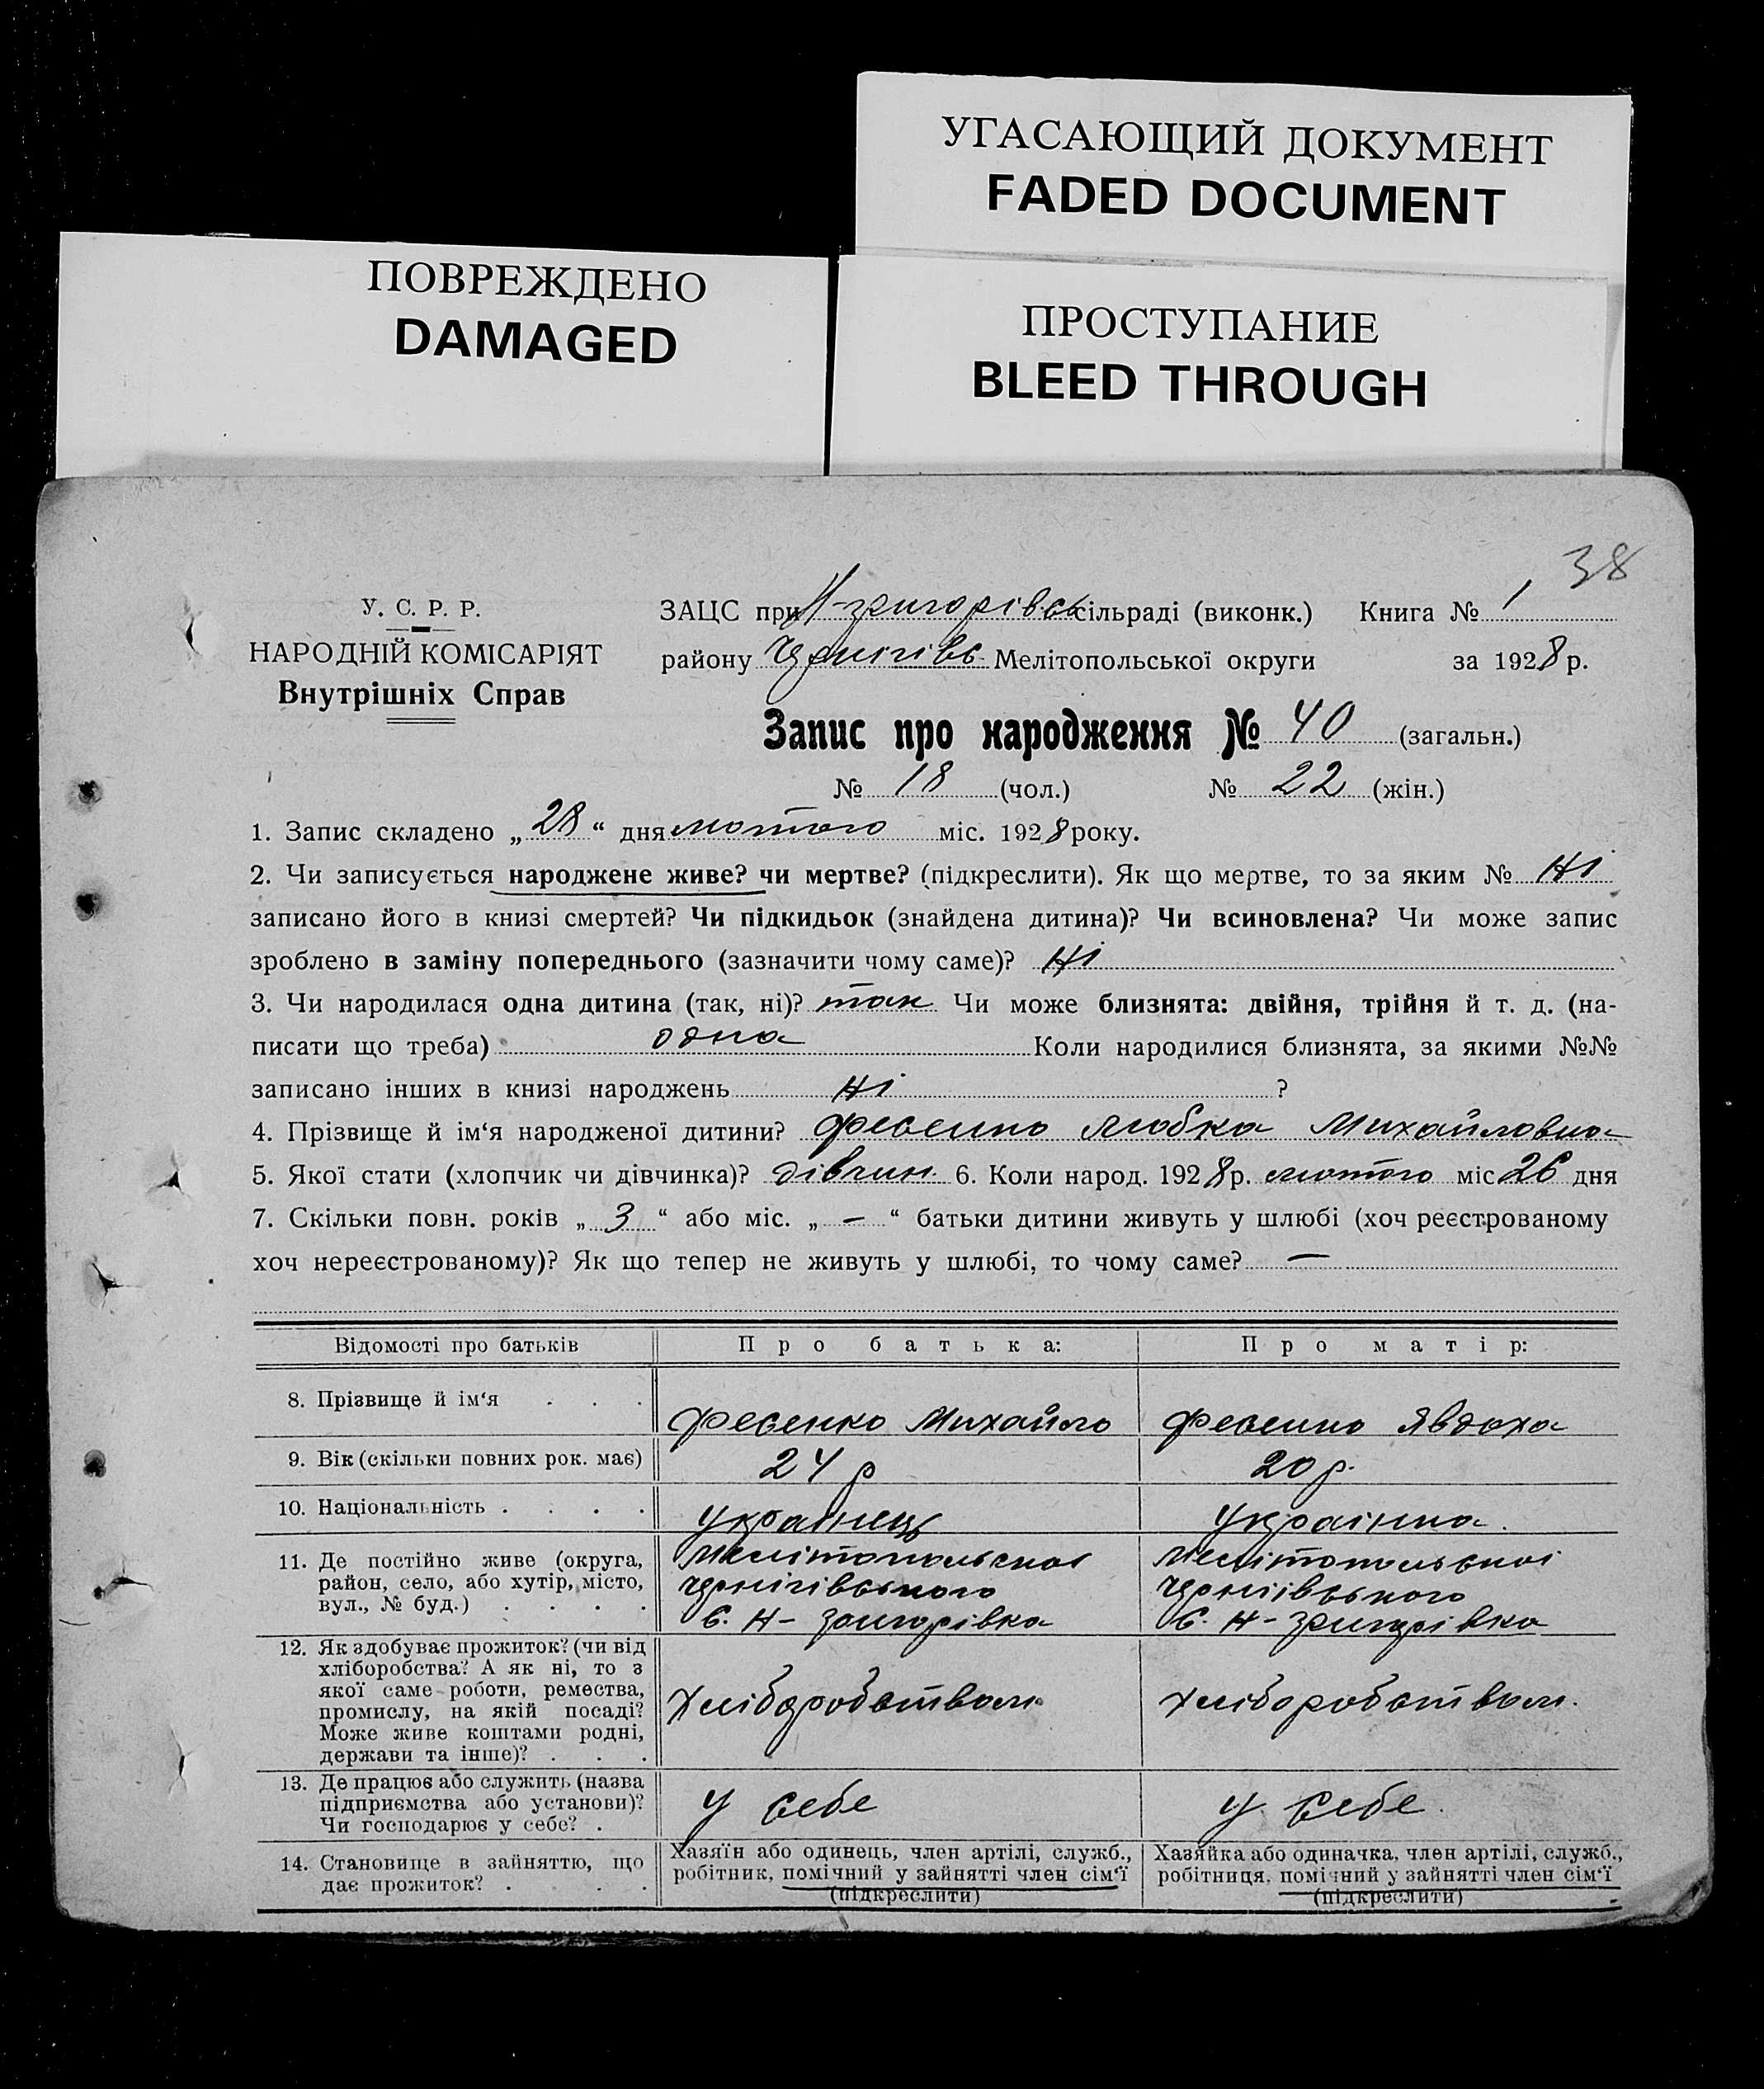 УГАСАЮЩИЙ ДОКУМЕНТ
FADED DOCUMENT
ПОВРЕЖДЕНО
DAMAGED
ПРОСТУПАНИЕ
BLEED THROUGH
38
У. С. Р. Р.
НАРОДНІЙ КОМІСАРІЯТ
Внутрішніх Справ
ЗАЦС при Н-григорівсь сільраді (виконк.) Книга № 1
району Чернігівс. Мелітопольської округи за 1928 р.
Запис про народження № 40 (загальн.)
№ 18 (чол.) № 22 (жін.)
1. Запис складено „ 28 “ дня лютого міс. 1928 року.
2. Чи записується народжене живе? чи мертве? (підкреслити). Як що мертве, то за яким № Ні
записано його в книзі смертей? Чи підкидьок (знайдена дитина)? Чи всиновлена? Чи може запис
зроблено в заміну попереднього (зазначити чому саме)? Ні
3. Чи народилася одна дитина (так, ні)? так Чи може близнята: двійня, трійня й т. д. (на-
писати що треба) одна Коли народилися близнята, за якими №№
записано інших в книзі народжень Ні ?
4. Прізвище й ім‘я народженої дитини? Фесенко Любка Михайловна
5. Якої стати (хлопчик чи дівчинка)? дівчин. 6. Коли народ. 1928 р. лютого міс 26 дня
7. Скільки повн. років „ 3 “ або міс. „ — “ батьки дитини живуть у шлюбі (хоч реєстрованому
хоч нереєстрованому)? Як що тепер не живуть у шлюбі, то чому саме? —
Відомості про батьків Про батька: Про матір:
8. Прізвище й ім‘я . . . Фесенко Михайло Фесенко Явдоха
9. Вік (скільки повних рок. має) 24 р 20 р.
10. Національність . . . . Українець Українка.
11. Де постійно живе (округа, Мелітопольської Мелітопольської
район, село, або хутір, місто, Чернігівського Чернігівського
вул., № буд.) . . . . С. Н-григорівка С. Н-григорівка
12. Як здобуває прожиток? (чи від
хліборобства? А як ні, то з
якої саме роботи, ремества, Хліборобством Хліборобством.
промислу, на якій посаді?
Може живе коштами родні,
держави та інше)? . . .
13. Де працює або служить (назва
підприємства або установи)? У себе У себе.
Чи господарює у себе? .
14. Становище в зайняттю, що Хазяїн або одинець, член артілі, служб., Хазяйка або одиначка, член артілі, служб.,
дає прожиток? . . . . робітник, помічний у зайнятті член сім‘ї робітниця, помічний у зайнятті член сім‘ї
(підкреслити) (підкреслити)